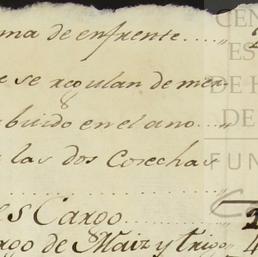 ma de enfrente....."
e se regulan de mer-
buido en el ano..."
las dos Corechas
es Cargo..........
rgo de Maiz y trigo
CEN
ES
DE H
DE
FUN